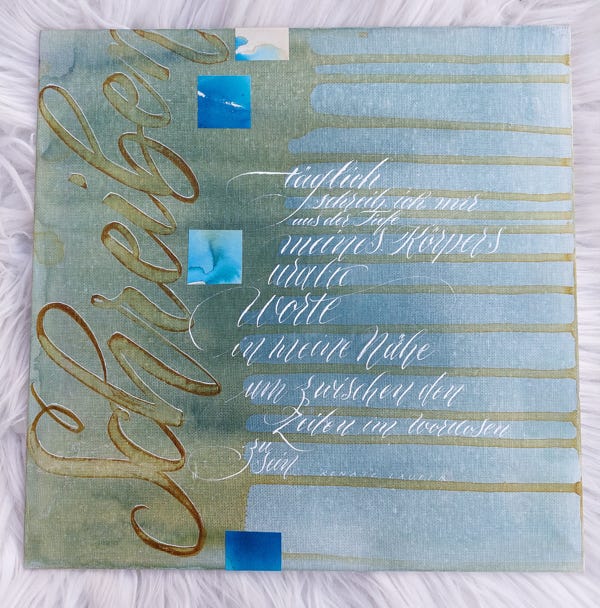 Schreiben
täglich
schreib ich mir
aus der Tiefe
meines Körpers
uralte
Worte
in meine Nähe
um zwischen den
Zeilen im wortlosen
zu
sein